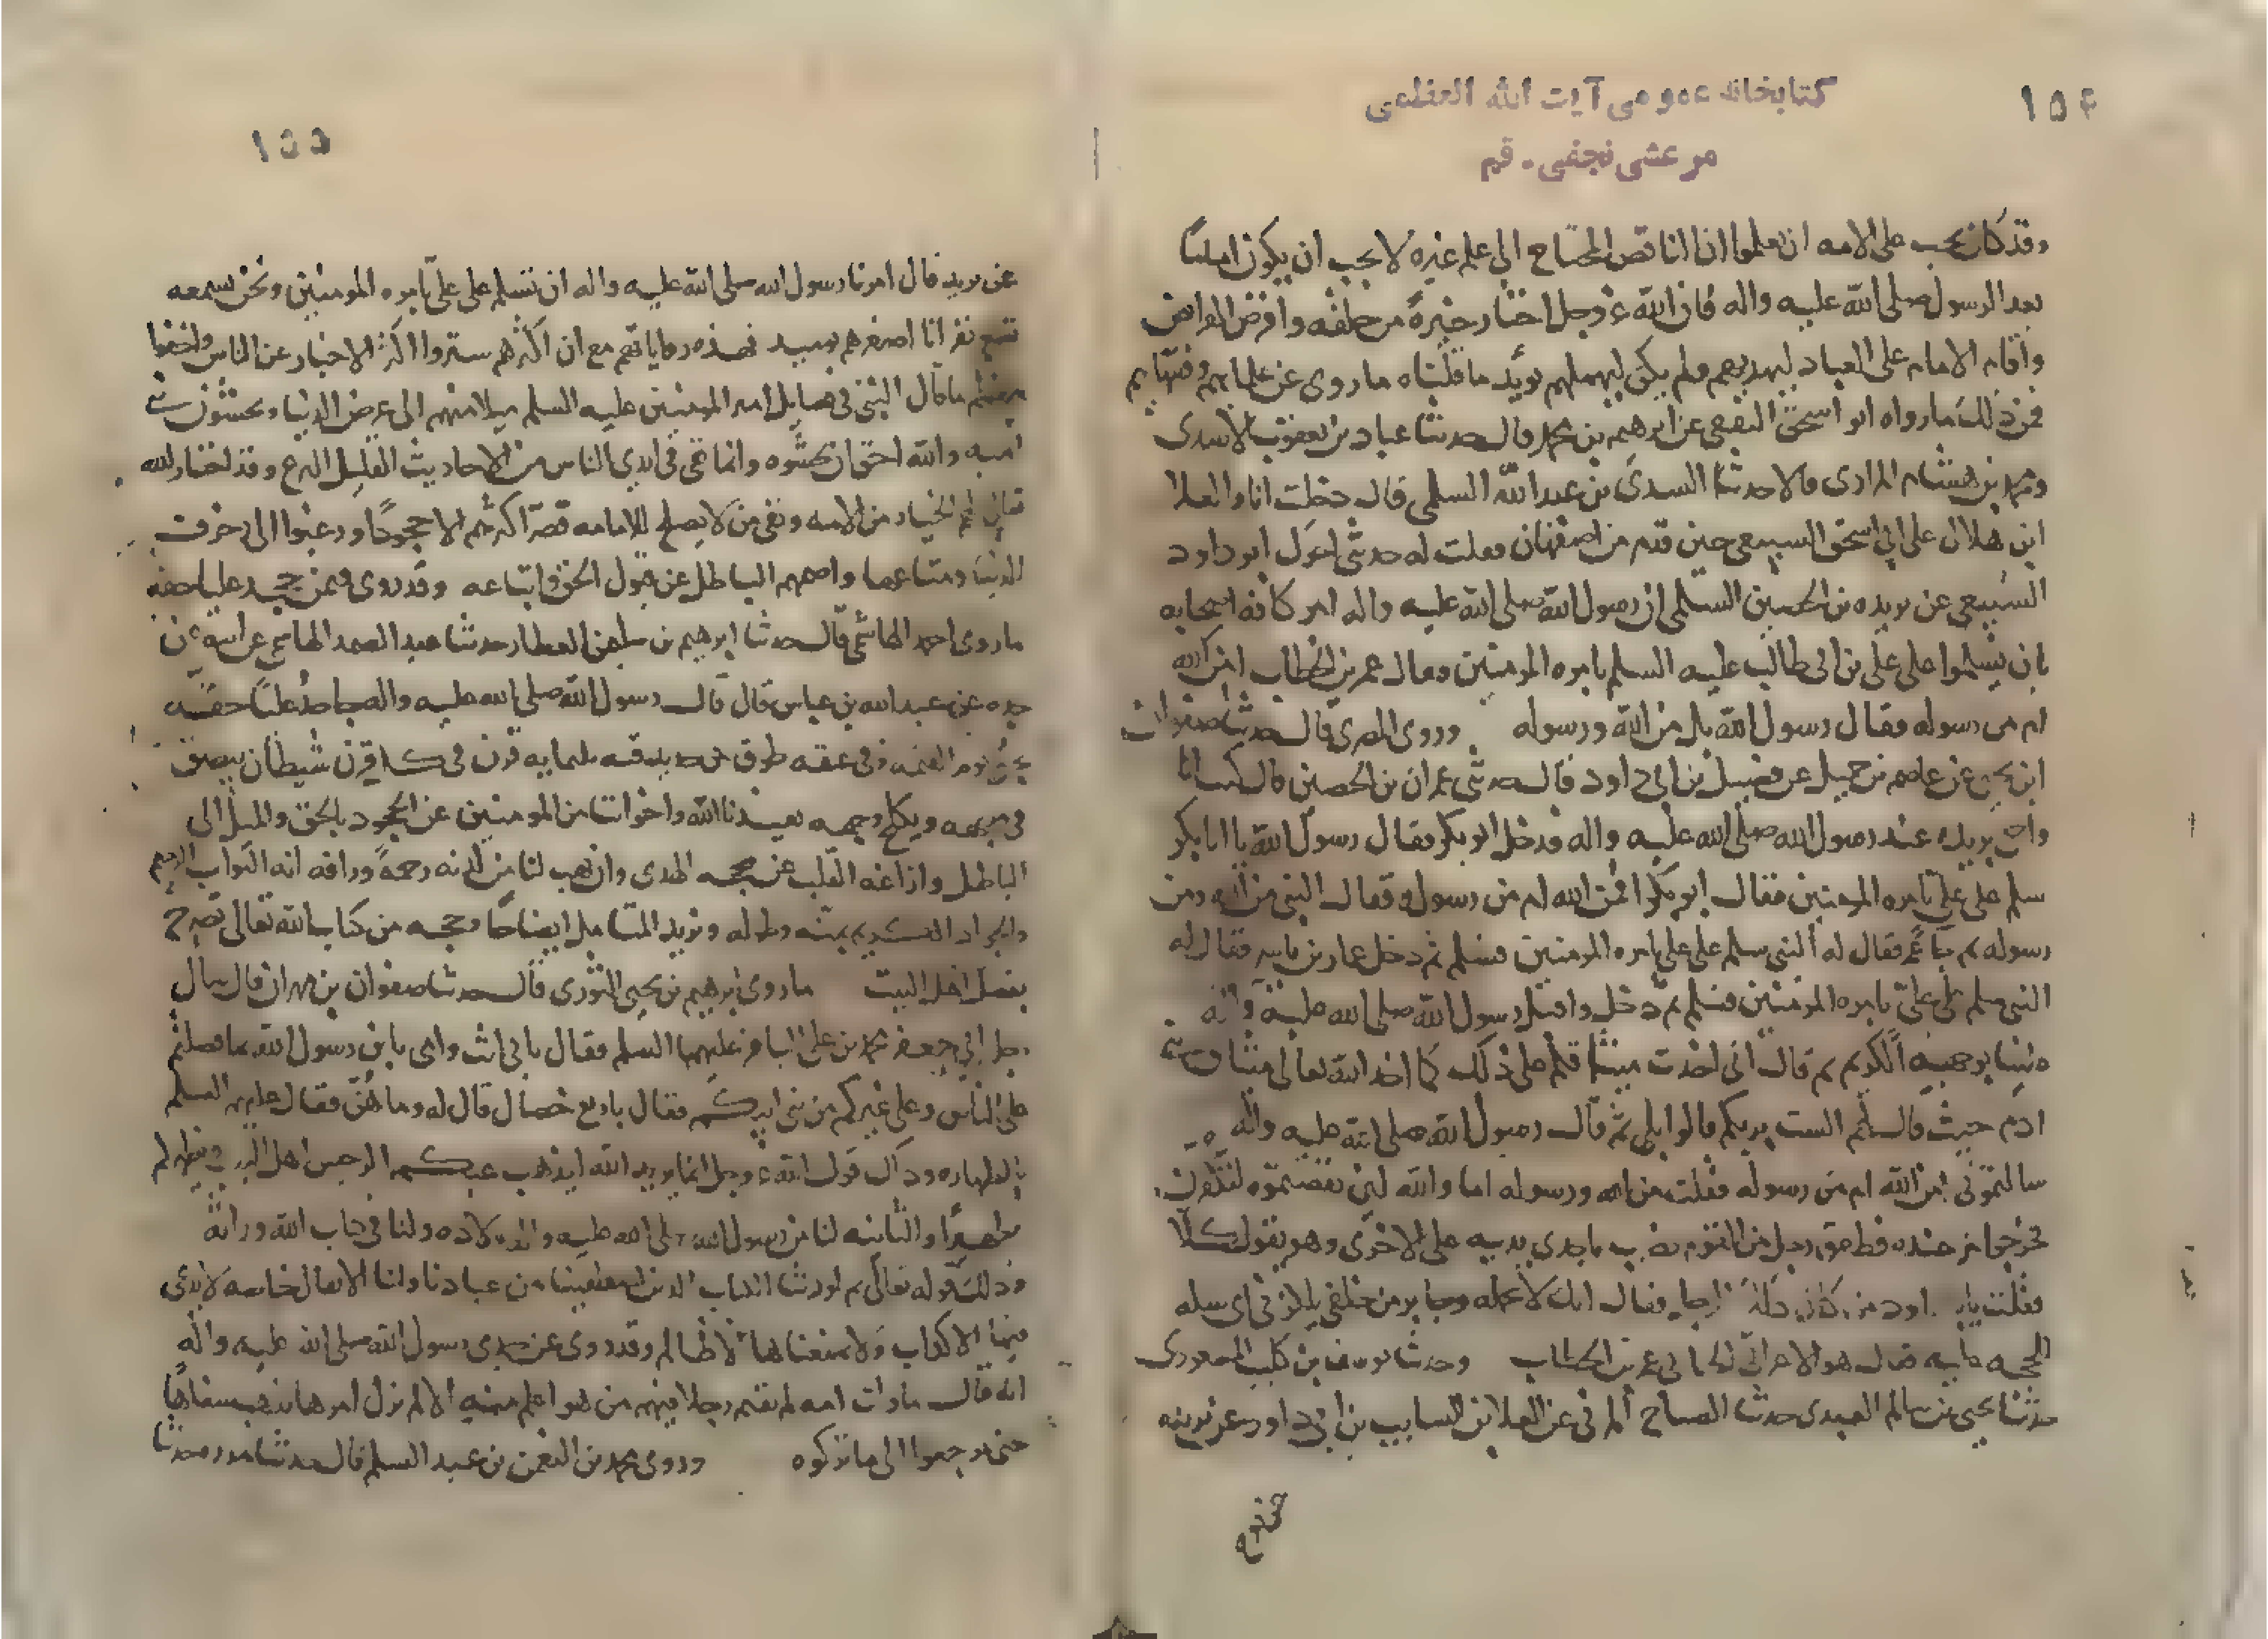 ١٥٤
كتابخانه عمومى آيت الله العظمى
مرعشى نجفى - قم
وقد كان يجب على الامه ان يعلموا ان الناقص المحتاج الى علم غيره لا يجب ان يكون اماما
بعد الرسول صلى الله عليه واله فان الله عز وجل اختار خيرة من خلقه وافرض الفرايض
واقام الامام على العباد ليهديهم ولم يكن ليهملهم يويد ما قلناه ما روى عن علمايهم وفقهايهم
فمن ذلك ما رواه ابو اسحق عن ابرهيم بن محمد وقال حدثنا عباد بن يعقوب الاسدى
ومحمد بن هشام المرادى قالا حدثنا السدى بن عبد الله السلمى قال دخلت انا والعلا
ابن هلال على ابى اسحق السبيعى حين قدم من اصفهان فقلت له حدثنى ابو داود
السبيعى عن بريده بن الحصين السلمى ان رسول الله صلى الله عليه واله امر كافه اصحابه
بان يسلموا على على بن ابى طالب عليه السلم بامره المومنين وقال عمر بن الخطاب امن الله
ام من رسوله فقال رسول الله بل من الله ورسوله وروى المصرى قال حدثنا صفوان
ابن يحيى عن عاصم بن حميل عن فضيل بن ابى داود قال حدثنى عمران بن الحصين قال كنت انا
واخى بريده عند رسول الله صلى الله عليه واله فدخل ابو بكر فقال رسول الله يا ابا بكر
سلم على على بامره المومنين فقال ابو بكر امن الله ام من رسوله فقال النبى من الله ومن
رسوله ثم جا عمر فقال له النبى سلم على على بامره المومنين فسلم ثم دخل عمار بن ياسر فقال له
النبى سلم على على بامره المومنين فسلم ثم دخل واقبل رسول الله صلى الله عليه واله
علينا بوجهه الكريم ثم قال انى اخذت ميثاقكم على ذلك كما اخذ الله تعالى ميثاق بنى
ادم حيث قال لهم الست بربكم قالوا بلى ثم قال رسول الله صلى الله عليه واله
سالتمونى امن الله ام من رسوله فقلت من الله ورسوله اما والله لئن نقضتموه لتكفرن
فخرجنا من عنده رجل من القوم يضرب باحدى يديه على الاخرى وهو يقول كلا
فقلت داود من كان ذلك الرجل فقال وجابر من خلفى
هو الاعرابى عمر بن الخطاب وحدثنا يوسف بن كليب المسعودى
حدثنا يحيى بن سالم العبدى حدثنا الصباح المزنى عن العلا بن السايب بن ابى داود عن بريده
١٥٥
عن بريده قال امرنا رسول الله صلى الله عليه واله ان نسلم على على بامره المومنين ونحن سبعه
تسع نفر انا اصغرهم فهذه رواياتهم مع ان اكثرهم ستروا اكثر الاخبار عن الناس واخفوا
ما قال النبى فى امير المومنين عليه السلم ميلا منهم الى عرض الدنيا ويخشون بنى
اميه والله احق ان يخشوه وانما بقى فى ايدى الناس من الاحاديث القليل وقد اختار الله
تعالى لهم الخيار من الامه ونفى من لا يصلح للامامه اكثرهم الا جحودا ورغبوا الى زخرف
الدنيا ومتاعها واصمهم الباطل عن قبول الحق واتباعه وقد روى فيمن جحد عليا حقه
ما روى احمد الهاشمى قال حدثنا ابرهيم بن سليمن العطار حدثنا عبد الصمد الهاشمى عن ابيه عن
جده عن عبد الله بن عباس قال قال رسول الله صلى الله عليه واله جاحد على حقه
يجى يوم القيمه وفى عنقه طوق ثلثمايه قرن فى كل قرن شيطان يبصق
فى وجهه ويكلح وجهه يعيذنا الله واخواننا من المومنين عن الجحود بالحق والميل الى
الباطل وازاغه القلب عن محجه الهدى وان يهب لنا من لدنه رحمة ورافه انه التواب الرحيم
والجواد الكريم بمنه وطوله ونزيد المتامل ايضاحا وحجه من كتاب الله تعالى تصرح
بفضل اهل البيت ما روى ابرهيم بن يحيى الثورى قال حدثنا صفوان بن مهران قال سال
رجل ابى جعفر محمد بن على الباقر عليهما السلم فقال بابى انت وامى يا بن رسول الله بما فضلتم
على الناس وعلى غيركم من بنى ابيكم فقال باربع خصال قال له وما هن فقال عليه السلم
بالطهاره وذاك قول الله عز وجل انما يريد الله ليذهب عنكم الرجس اهل البيت ويطهركم
تطهيرا والثانيه لنا من رسول الله صلى الله عليه واله ولاده ولنا فى كتاب الله وراثه
وذلك قوله تعالى ثم اورثنا الكتاب الذين اصطفينا من عبادنا ولنا الانفال خاصه لا يدعى
فيها الا كذاب ولا يمنعناها الا ظالم وقد روى عن جدى رسول الله صلى الله عليه واله
انه قال ما ولت امه امرها رجلا وفيهم من هو اعلم منه الا لم يزل امرها يذهب سفالا
حتى يرجعوا الى ما تركوه وروى محمد بن النعمن بن عبد السلم قال حدثنا